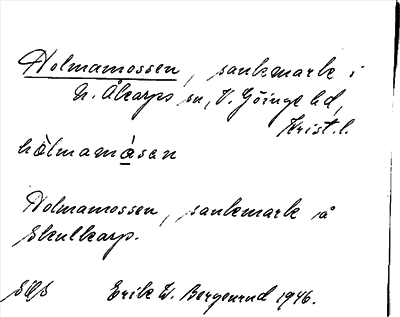 Holmamossen, sankmark i
N. Åkarps sn, V. Göinge hd,
Krist. l.
hòlmamåsan
Holmamossen, sankmark på
Skulkarp.
Erik W. Bergenrud 1946.